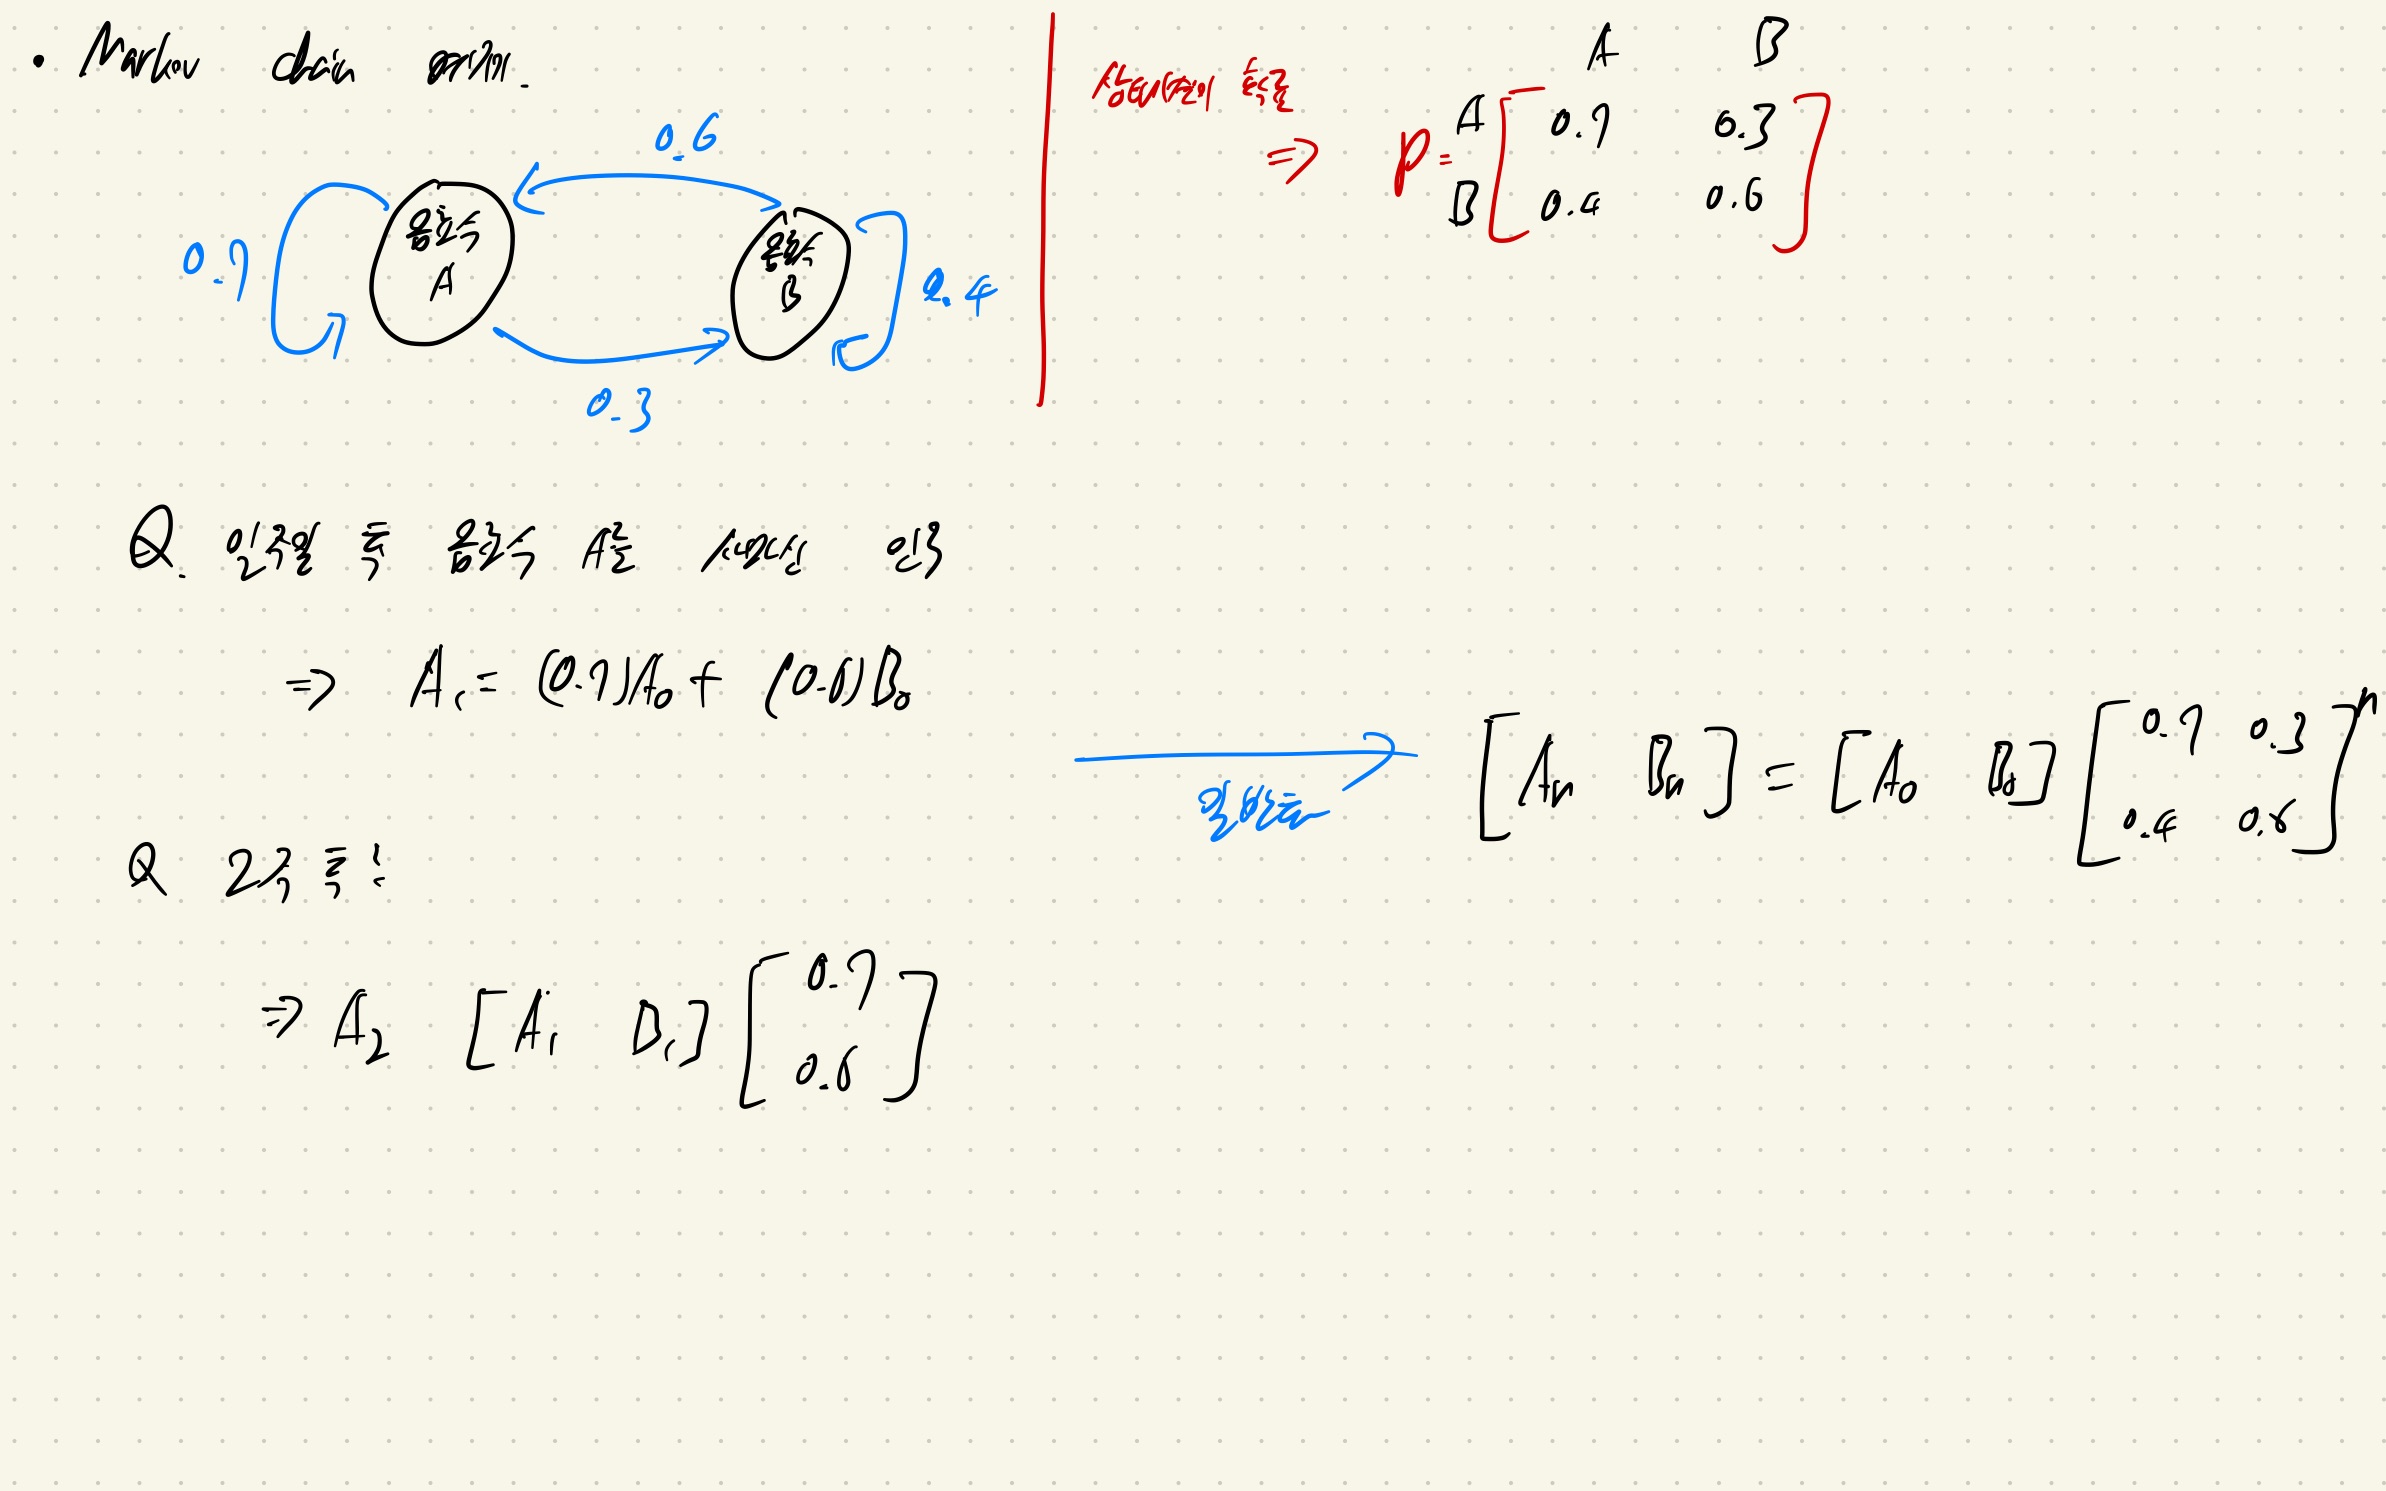 • Markov chain 예시.
0.6
0.7
음료수
A
음료수
B
0.4
0.3
상태전이 확률
⇒ P =
A B
A [ 0.7 0.3 ]
B [ 0.4 0.6 ]
Q. 일주일 후 음료수 A를 사먹는 인구
⇒ A₁ = (0.7)A₀ + (0.6)B₀
Q 2주 후:
⇒ A₂ [A₁ B₁] [ 0.7
0.6 ]
일반화
[Aₙ Bₙ] = [A₀ B₀] [ 0.7 0.3
0.4 0.6 ]ⁿ